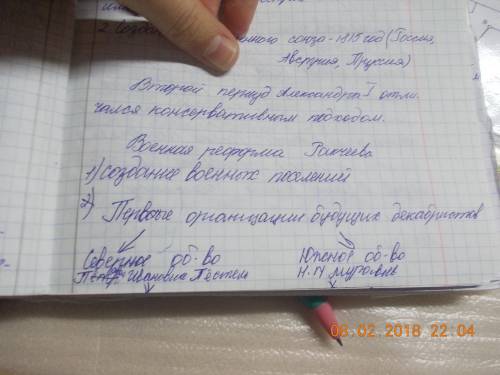 2. Созда нного союза - 1815 год (Россия,
Австрия, Пруссия)
Второй период Александра I отли.
чался консервативным подходом.
Военная реформа
1) создание военных поселений
2) Первые организации будущих декабристов
Северное об-во Южное об-во
Ивановичь Пестель Н.М Муравьев
08.02.2018 22:04